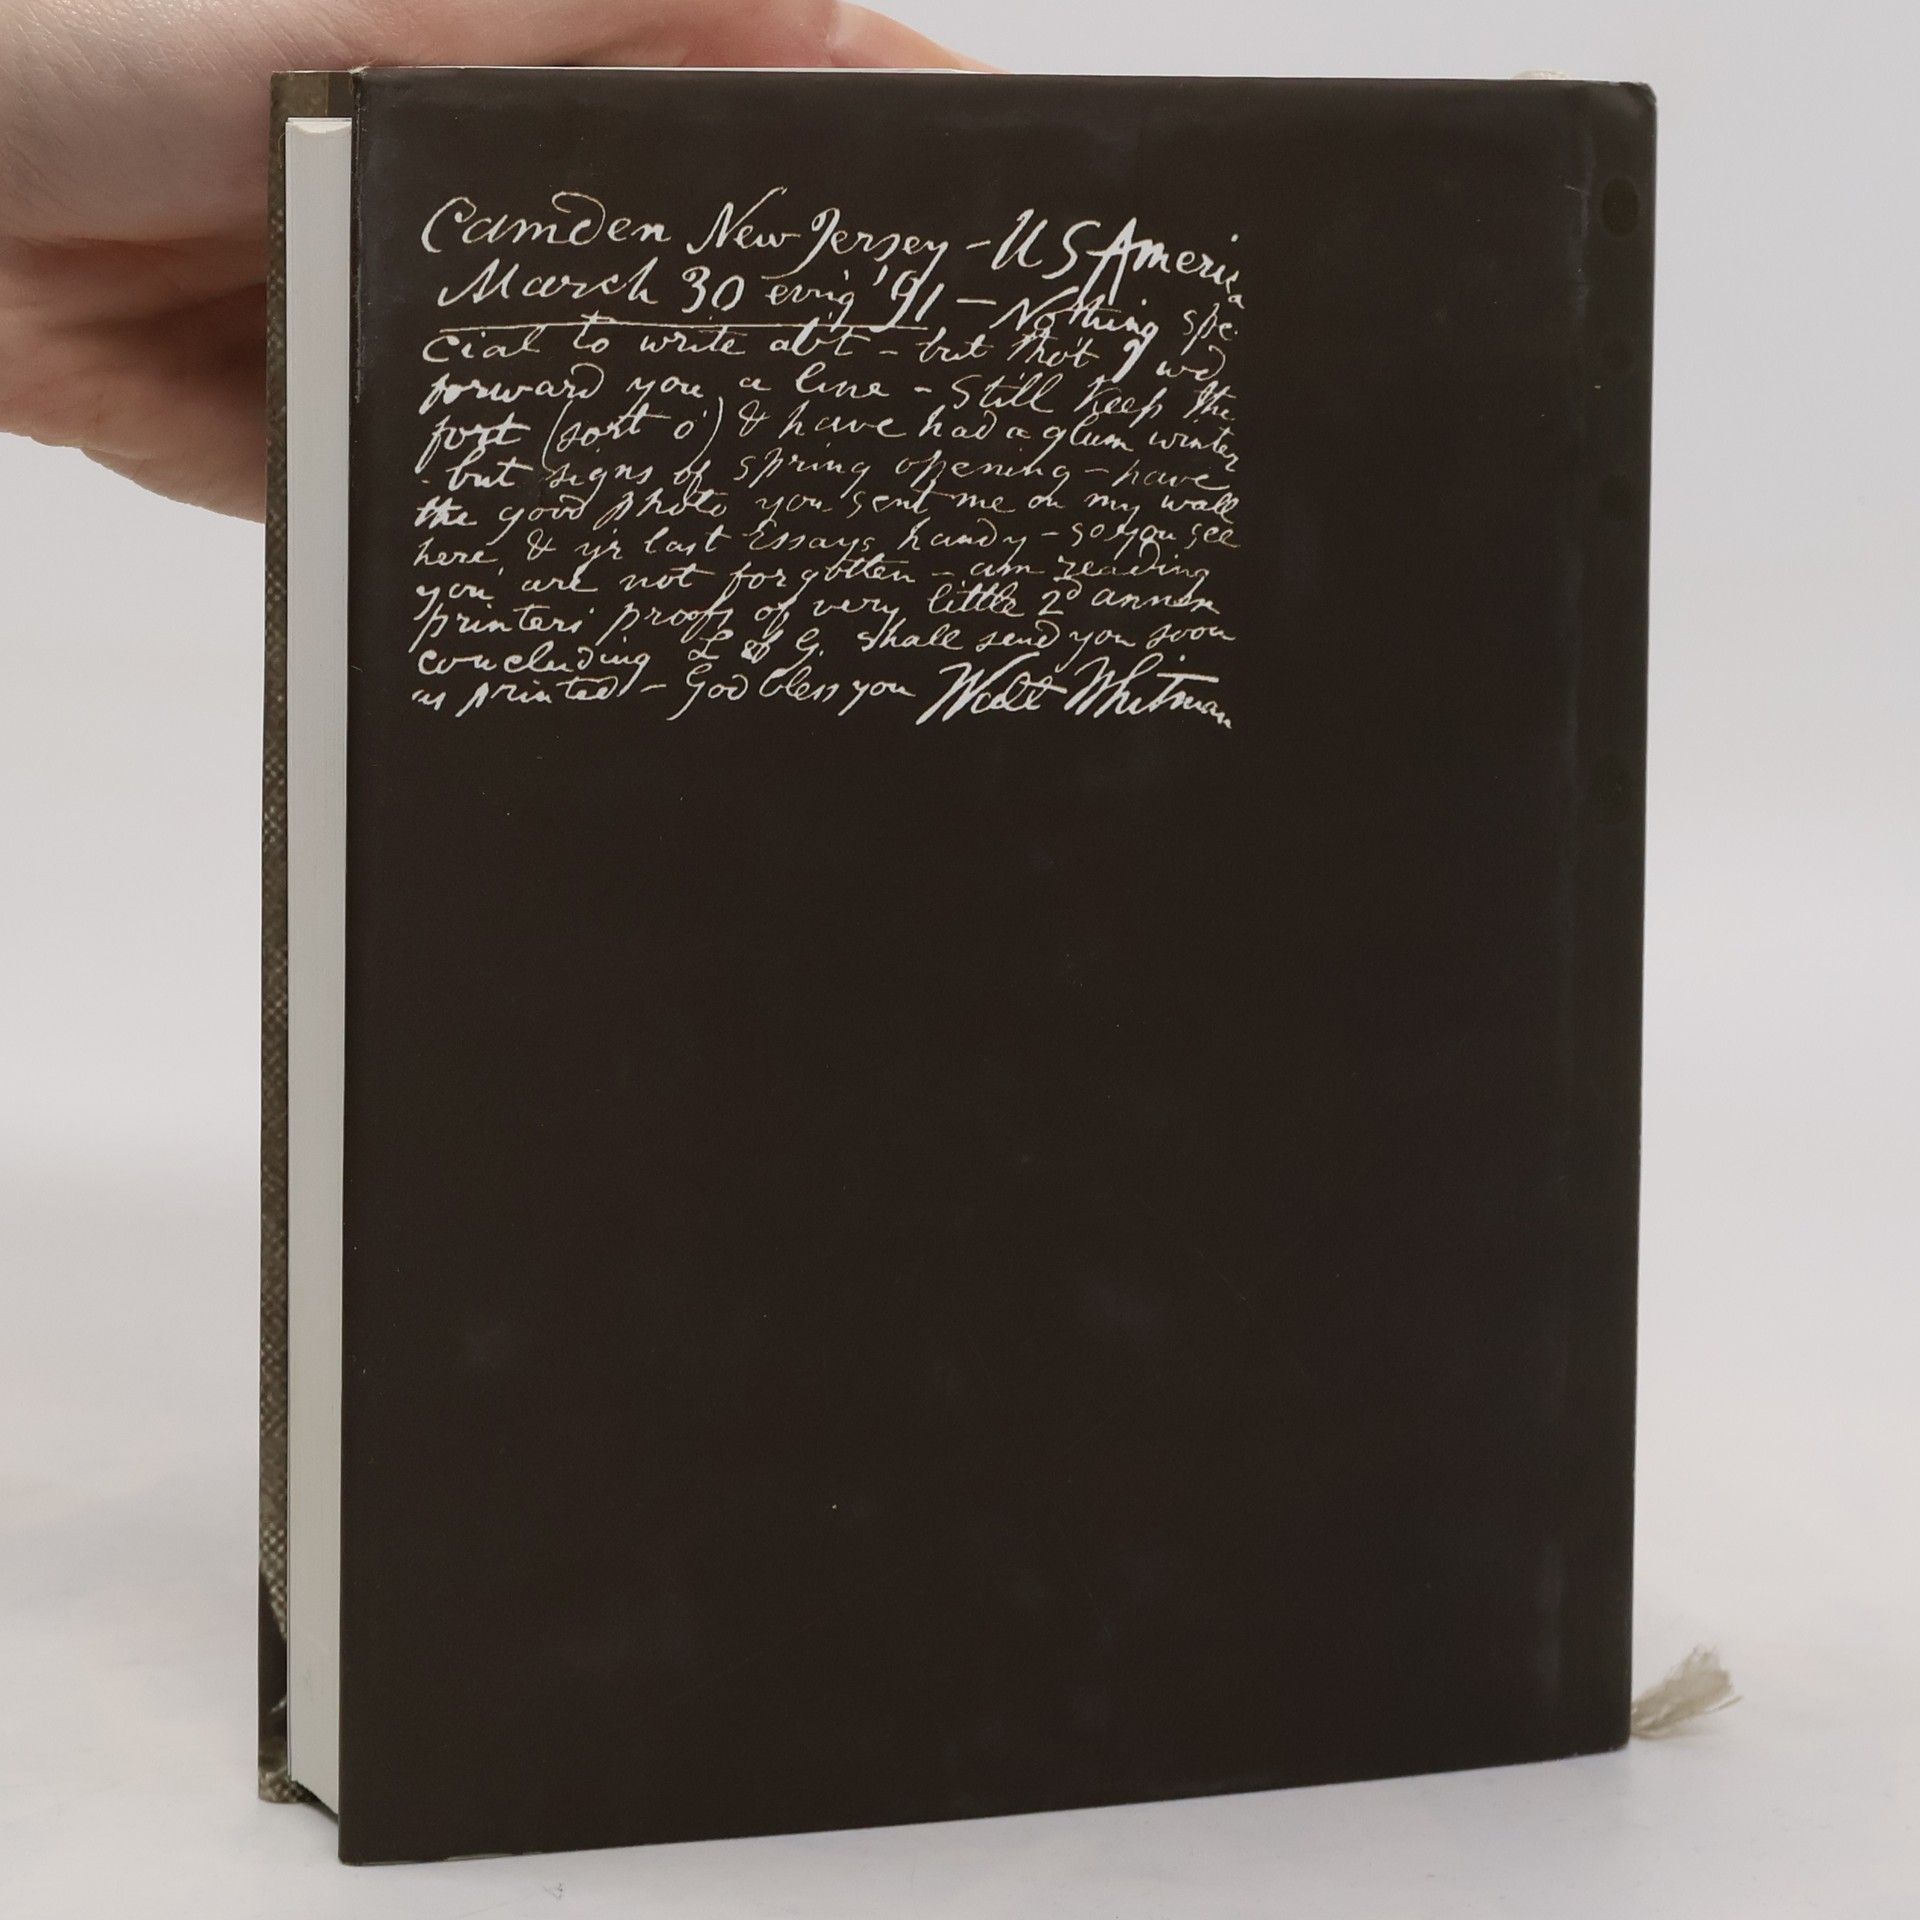 Camden New Jersey - U S America
March 30 ev'ng '91 - Nothing spe-
cial to write abt - but tho't I wd
forward you a line - Still keep the
fort (sort o') & have had a glum winter
- but signs of spring opening - have
the good photo you sent me on my wall
here, & y'r last Essays handy - so you see
you are not forgotten - am reading
printers proofs of very little 2d annex
concluding L of G. shall send you soon
as printed - God bless you Walt Whitman